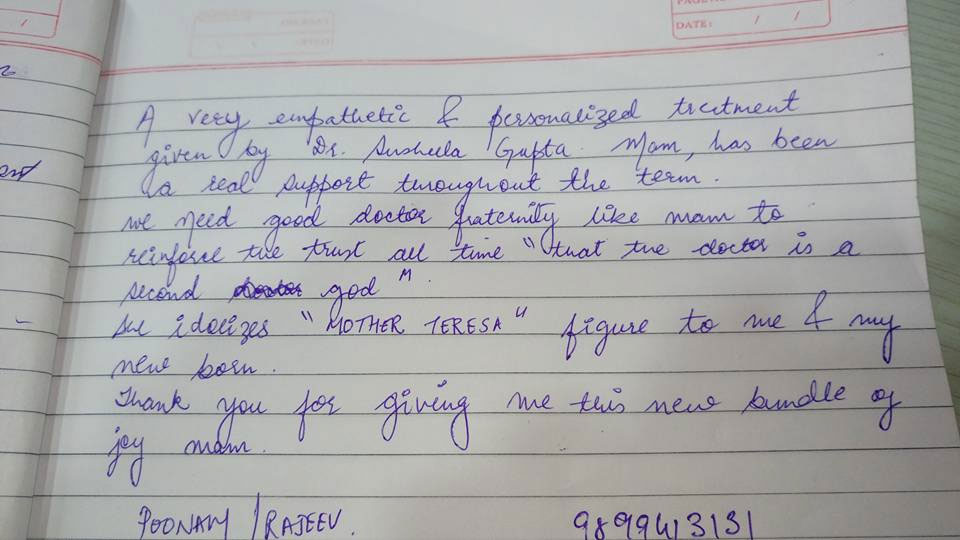 DATE: / /
A very empathetic & personalized treetment
given by Dr. Susheela Gupta. Mam, has been
a real support throughout the term.
we need good doctor fraternity like mam to
reinforce the trust all time "that the doctor is a
second god".
she idolizes "MOTHER TERESA" figure to me & my
new born.
Thank you for giving me this new bundle of
joy mam.
POONAM / RAJEEV. 9899413131